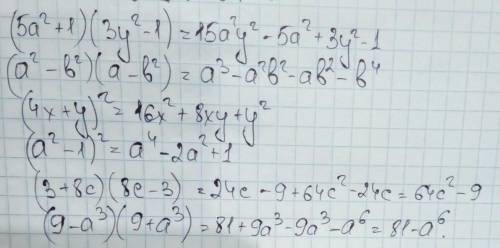 (5a²+1)(3y²-1)=15a²y²-5a²+3y²-1
(a²-b²)(a-b²)=a³-a²b²-ab²-b⁴
(4x+y)²=16x²+8xy+y²
(a²-1)²=a⁴-2a²+1
(3+8c)(8c-3)=24c-9+64c²-24c=64c²-9
(9-a³)(9+a³)=81+9a³-9a³-a⁶=81-a⁶.